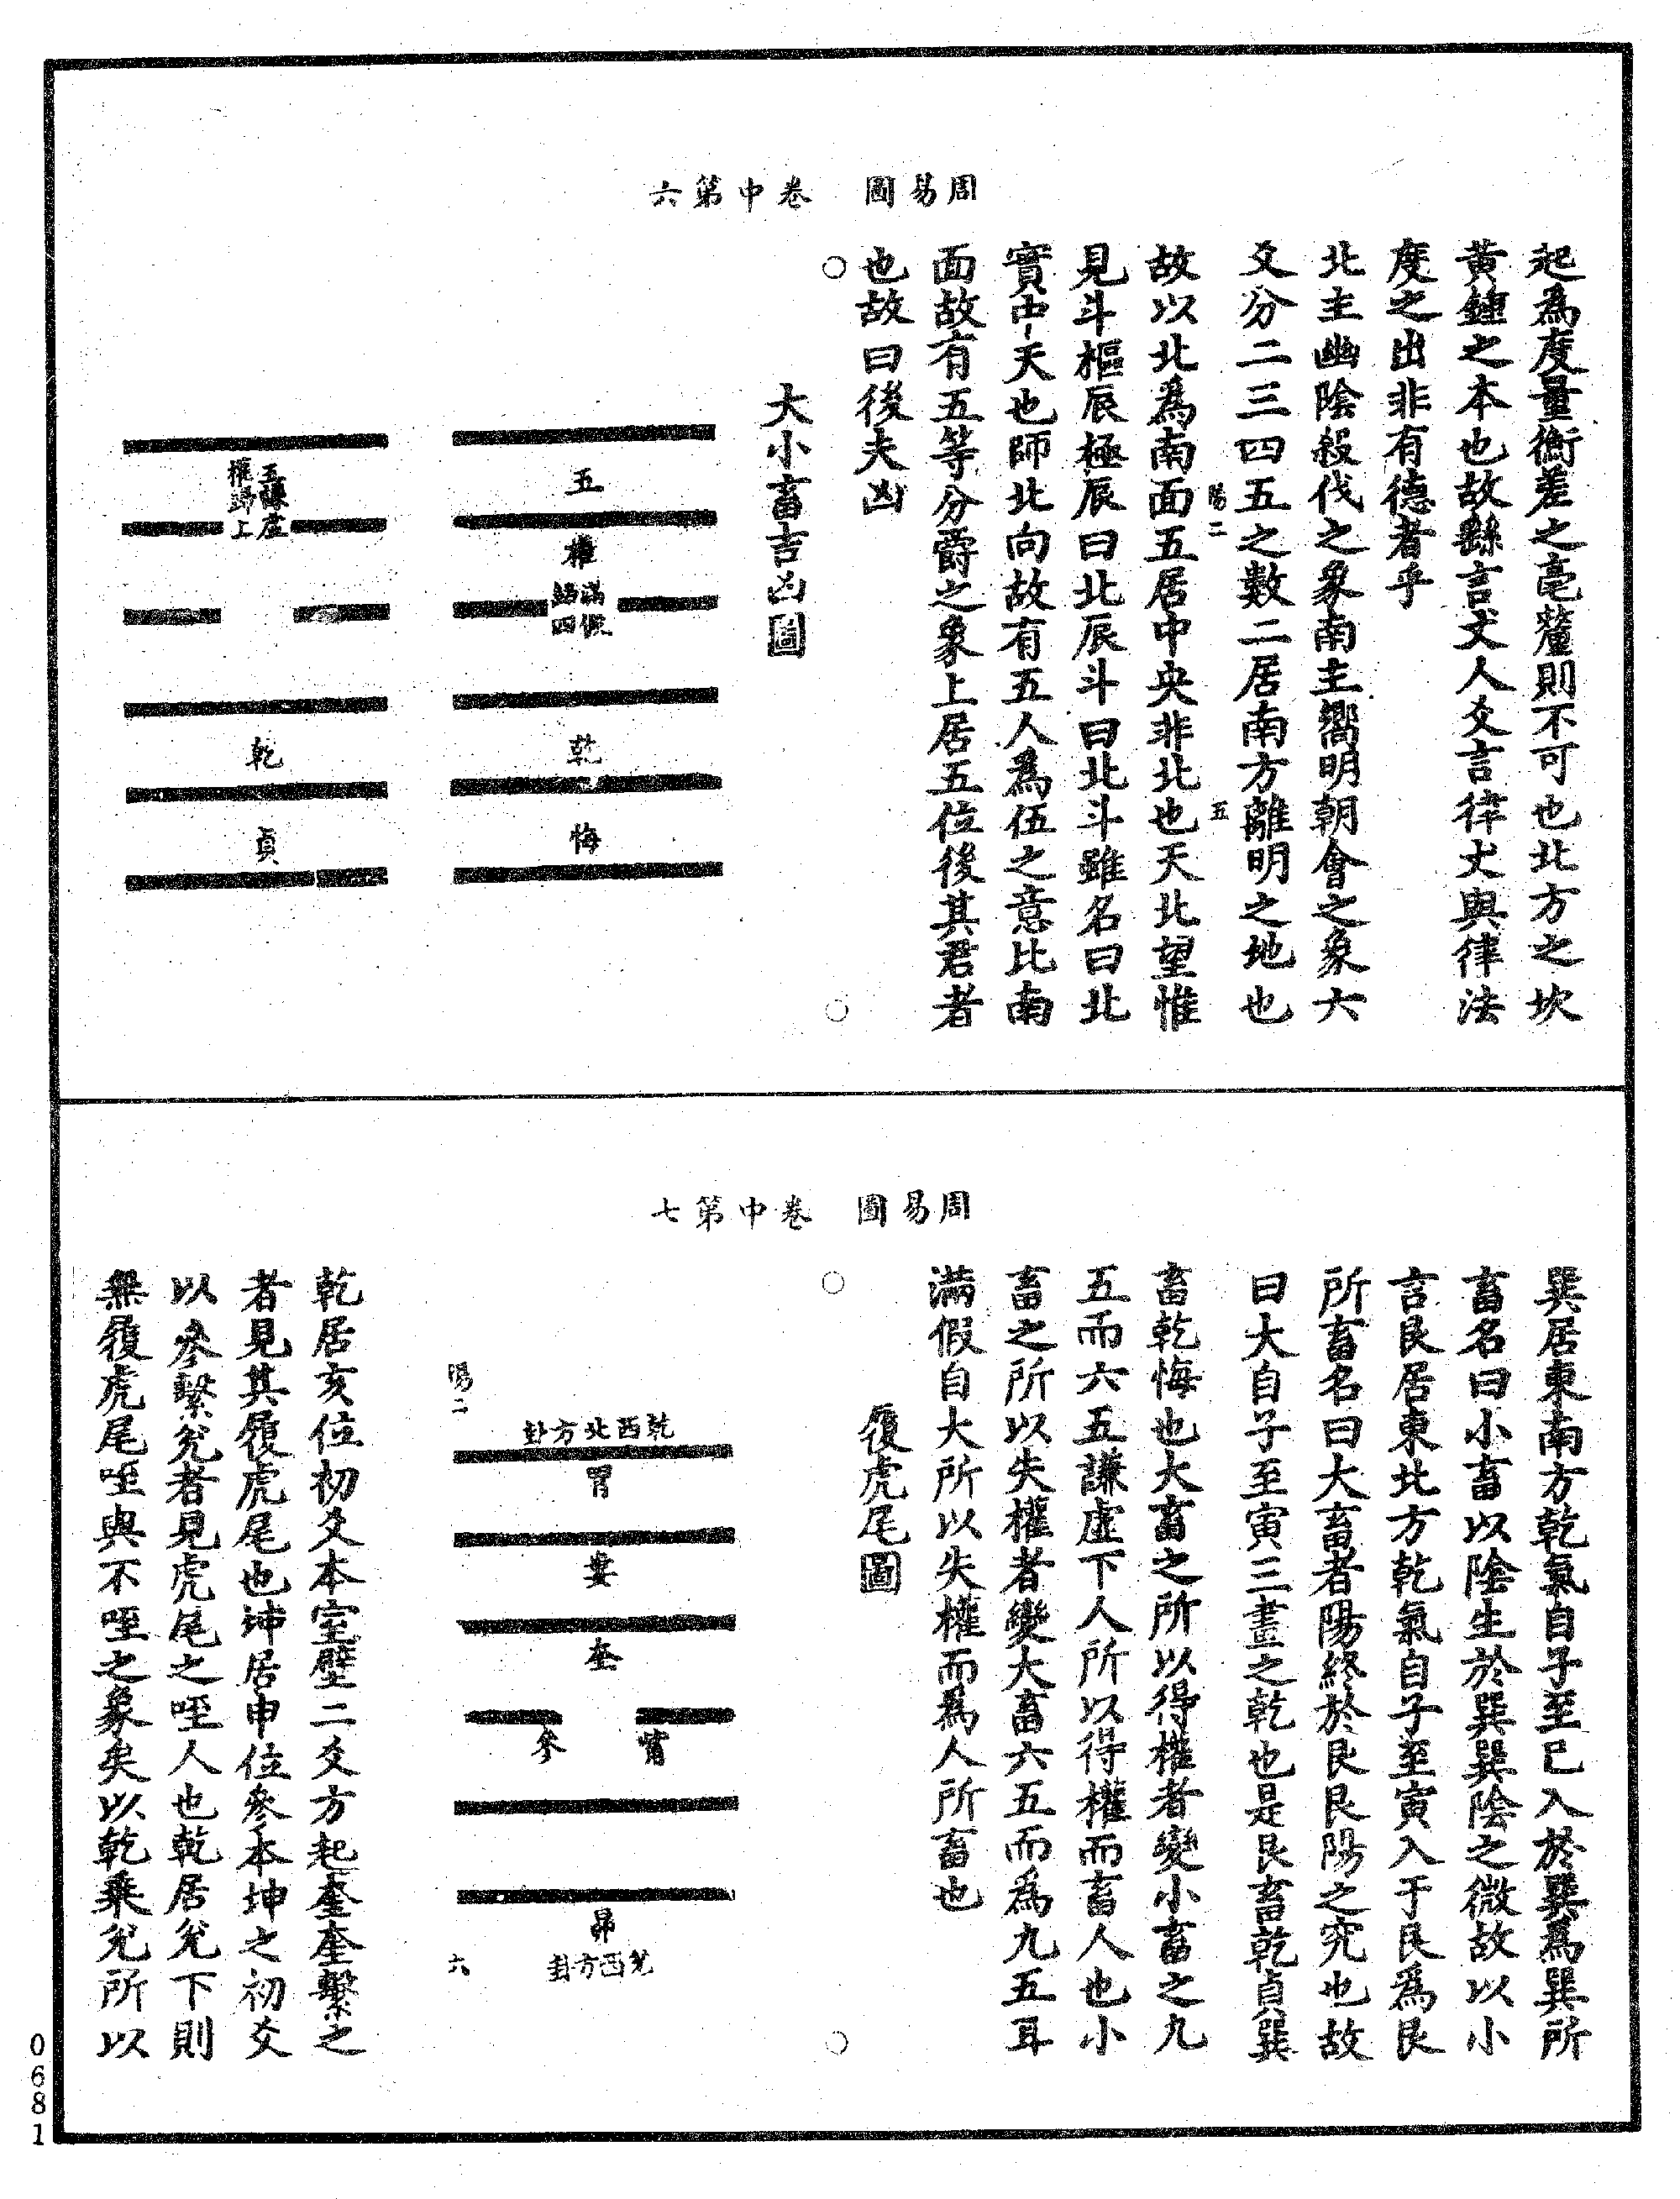 周易圖　卷中第六
起為度量衡差之毫釐則不可也北方之坎
黃鍾之本也故繇言丈人爻言律丈與律法
度之出非有德者乎
北主幽陰殺伐之象南主嚮明朝會之象六
爻分二三四五之數二居南方離明之地也
陽二
五
故以北為南面五居中央非北也天北望惟
見斗樞辰極辰曰北辰斗曰北斗雖名曰北
實中天也師北向故有五人為伍之意比南
面故有五等分爵之象上居五位後其君者
也故曰後夫凶
大小畜吉凶圖
五
權
滿假
歸四
乾
悔
五謙虛
權歸上
乾
貞
周易圖　卷中第七
巽居東南方乾氣自子至巳入於巽為巽所
畜名曰小畜以陰生於巽巽陰之微故以小
言艮居東北方乾氣自子至寅入于艮為艮
所畜名曰大畜者陽終於艮艮陽之究也故
曰大自子至寅三畫之乾也是艮畜乾貞巽
畜乾悔也大畜之所以得權者變小畜之九
五而六五謙虛下人所以得權而畜人也小
畜之所以失權者變大畜六五而為九五耳
滿假自大所以失權而為人所畜也
履虎尾圖
乾西北方卦
胃
婁
奎
觜
參
昴
兌西方卦
陽二
六
乾居亥位初爻本室壁二爻方起奎奎繫之
者見其履虎尾也坤居申位參本坤之初爻
以參繫兌者見虎尾之咥人也乾居兌下則
無履虎尾咥與不咥之象矣以乾乘兌所以
0681